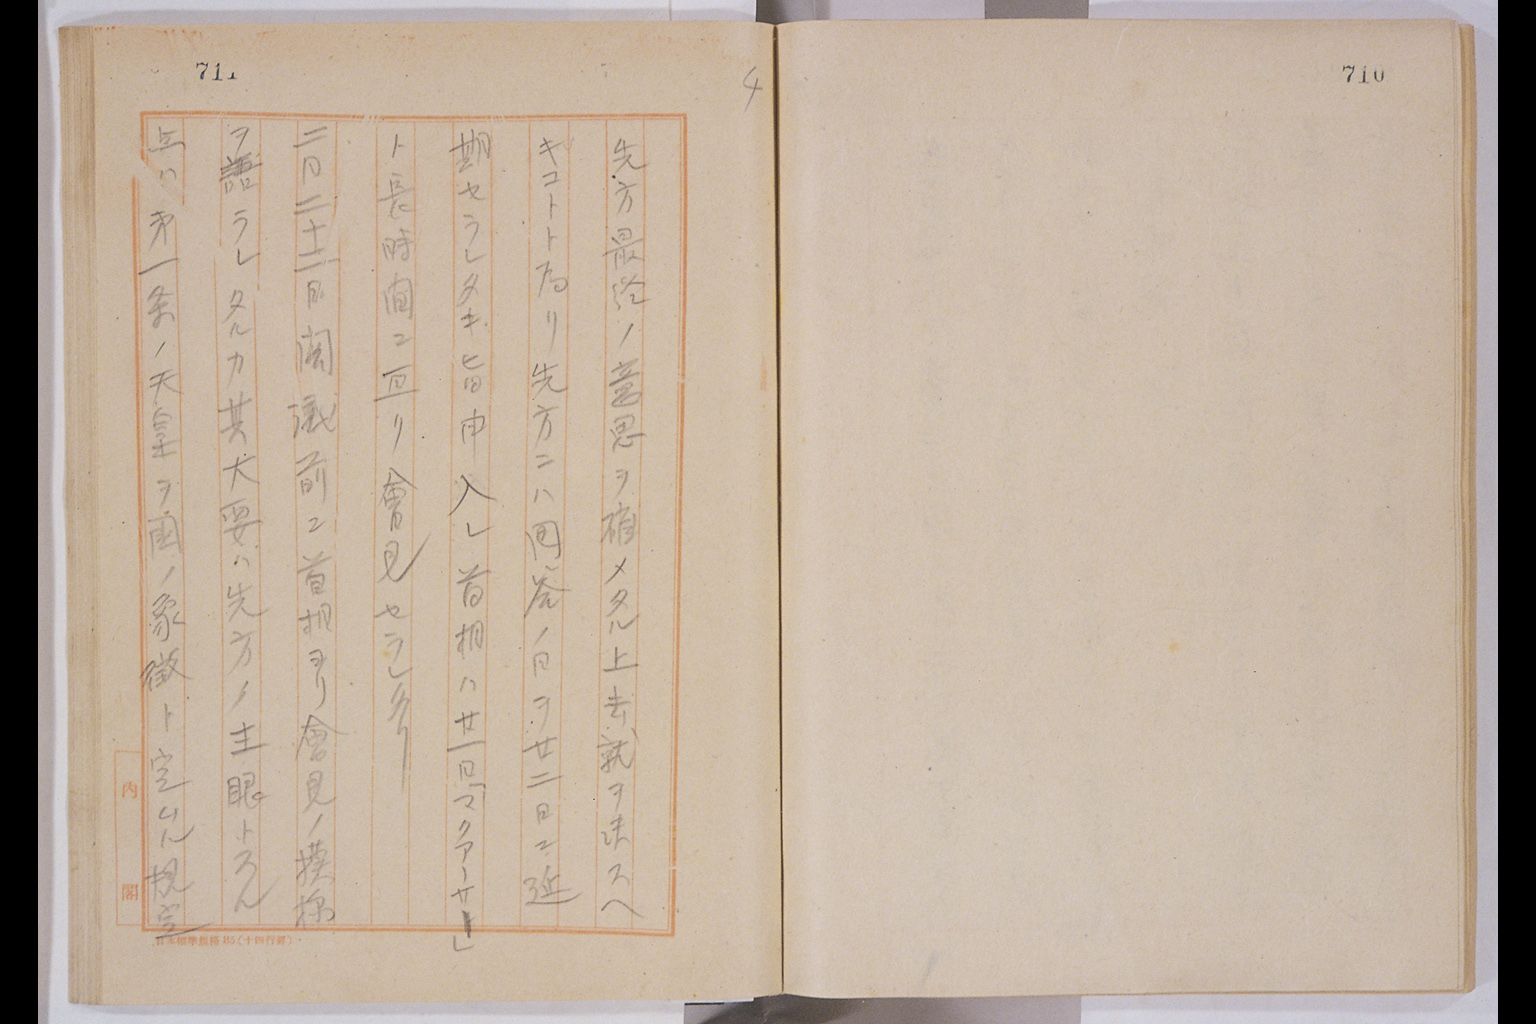 710
711
4
先方最終ノ意思ヲ確メタル上去就ヲ決スヘ
キコトト為リ先方ニハ回答ノ日ヲ廿二日ニ延
期セラレタキ旨申入レ首相ハ廿一日「マクアーサー」
ト長時間ニ亘リ會見セラレタリ
二月二十二日閣議前ニ首相ヨリ會見ノ模様
ヲ語ラレタルカ其大要ハ先方ノ主眼トスル
所ハ第一条ノ天皇ヲ國ノ象徴ト定ムル規定
内閣
日本標準規格B5(十四行罫)